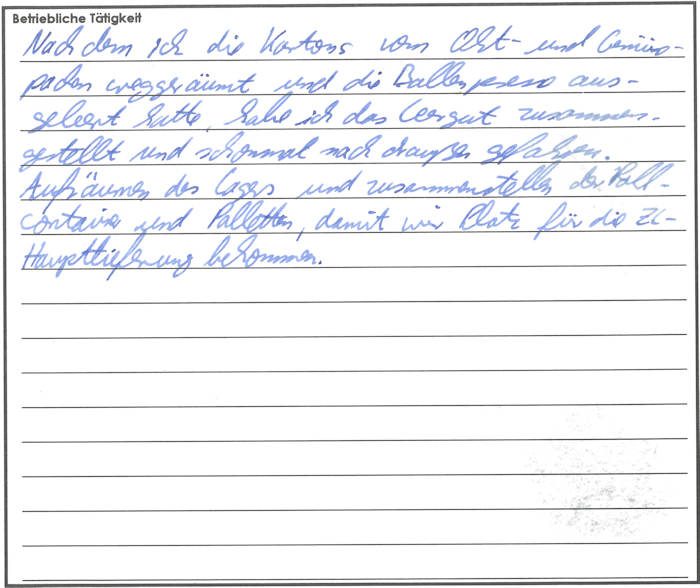 Betriebliche Tätigkeit
Nach dem ich die Kartons vom Obst- und Gemüse-
packen weggeräumt und die Ballenpresse aus-
geleert hatte, habe ich das Leergut zusammen-
gestellt und schonmal nach draußen gefahren.
Aufräumen des Lagers und zusammenstellen der Roll-
container und Palletten, damit wir Platz für die ZL-
Hauptlieferung bekommen.